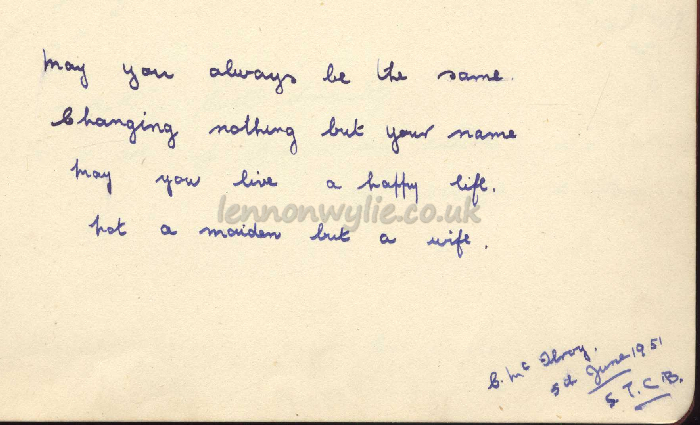 May you always be the same.
Changing nothing but your name
May you live a happy life.
Not a maiden but a wife.
lennonwylie.co.uk
McIlroy.
5th June 1951
S. T. C. B.